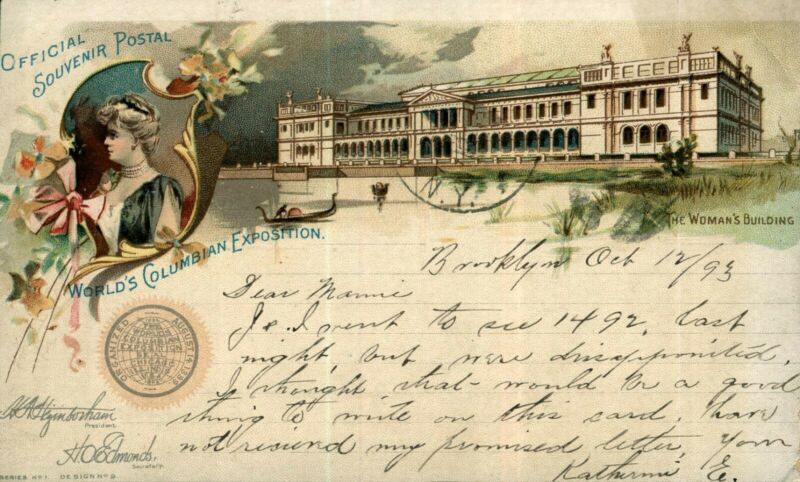 OFFICIAL
SOUVENIR POSTAL
WORLD'S COLUMBIAN EXPOSITION.
THE WOMAN'S BUILDING
Brooklyn Oct 12/93
Dear Mamie
J & I went to see 1492, last
night, but were disappointed.
I thought that would be a good
thing to write on this card. have
not received my promised letter, Your
Katherine E.
ORGANIZED AUGUST 14 1889
President.
H O Edmonds,
Secretary.
SERIES Nº 1. DESIGN Nº